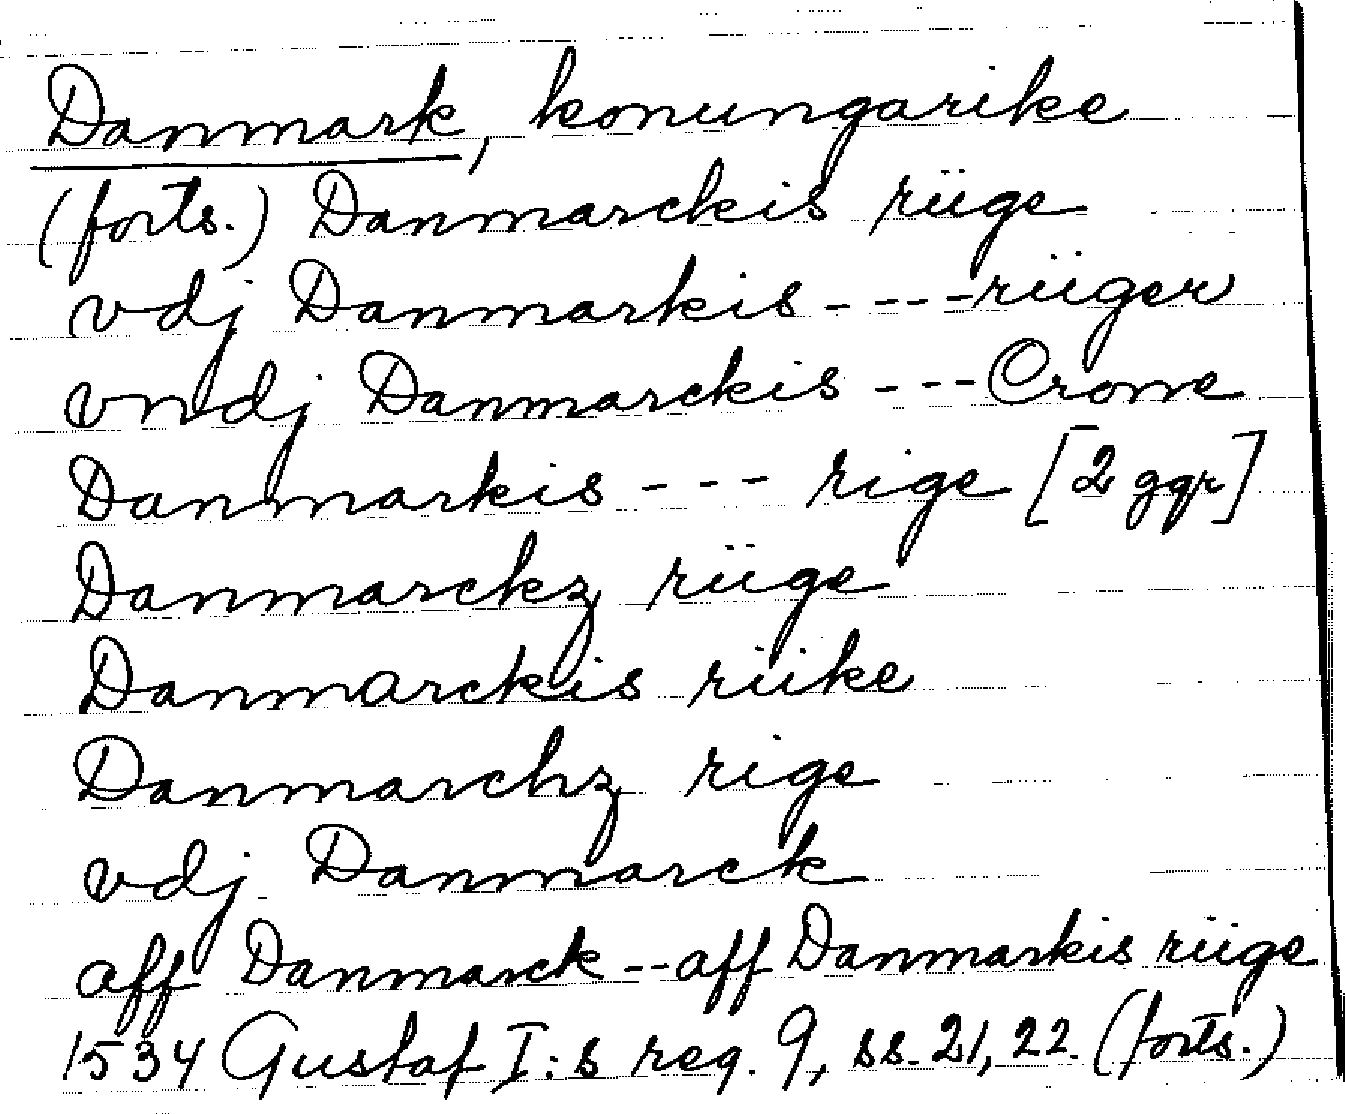 Danmark, konungarike
(forts.) Danmarckis riige
vdj Danmarkis - - - -riiger
vndj Danmarckis - - - Crone
Danmarkis - - - rige [2 ggr]
Danmarckz riige
Danmarckis riike
Danmarchz rige
vdj Danmarck
aff Danmarck - - aff Danmarkis riige
1534 Gustaf I:s reg. 9, ss. 21, 22. (forts.)